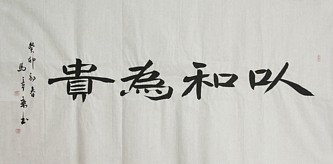 以和為貴
癸卯初春
馬
書